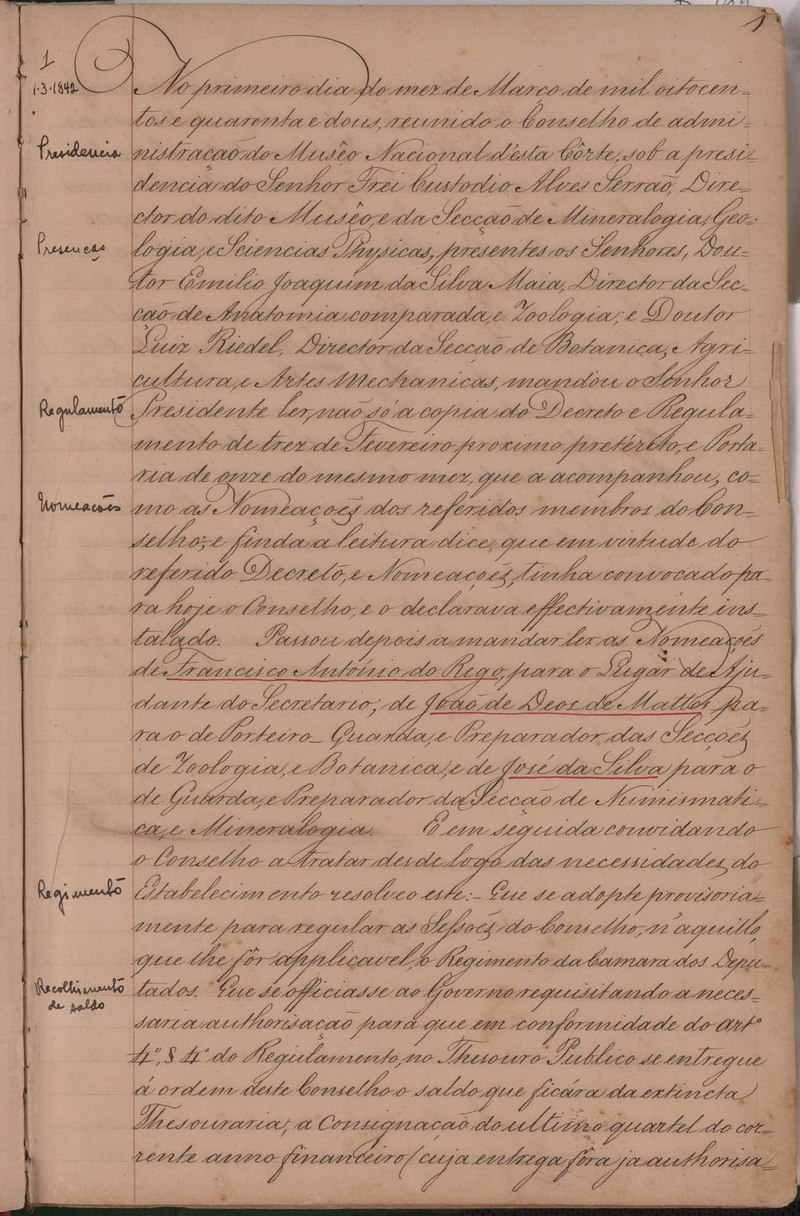 1
1
1-3-1842
No primeiro dia do mez de Março de mil oitocen=
tos e quarenta e dous, reunido o Conselho de admi=
Presidencia
nistração do Musêo Nacional d'esta Côrte, sob a presi=
dencia do Senhor Frei Custodio Alves Serrão, Dire=
ctor do dito Musêo, e da Secção de Mineralogia, Geo=
Presenças
logia, e Sciencias Physicas, presentes os Senhores, Dou=
tor Emilio Joaquim da Silva Maia, Director da Sec=
ção de Anatomia comparada, e Zoologia; e Doutor
Luiz Riedel, Director da Secção de Botanica, Agri=
cultura, e Artes Mechanicas, mandou o Senhor
Regulamento
Presidente ler, não só a copia do Decreto e Regula=
mento de trez de Fevereiro proximo pretérito, e Porta=
ria de onze do mesmo mez, que a acompanhou, co=
Nomeações
mo as Nomeações dos referidos membros do Con=
selho; e finda a leitura dice, que em virtude do
referido Decreto, e Nomeações, tinha convocado pa=
ra hoje o Conselho, e o declarava effectivamente ins=
talado. Passou depois a mandar ler as Nomeações
de Francisco António do Rego, para o Lugar de Aju=
dante do Secretario; de João de Deos de Mattos, pa=
ra o de Porteiro_ Guarda, e Preparador das Secções
de Zoologia, e Botanica, e de José da Silva para o
de Guarda, e Preparador da Secção de Numismati=
ca, e Mineralogia. E em seguida convidando
o Conselho a tratar desde logo das necessidades do
Regimento
Estabelecimento resolveo este:- Que se adopte provisoria=
mente para regular as Sessões do Conselho, n'aquillo,
que lhe fôr applicavel, o Regimento da Camara dos Depu=
Recolhimento
de saldo
tados. Que se officiasse ao Governo requisitando a neces=
saria authorisação para que em conformidade do artº
4º, § 4º do Regulamento, no Thesouro Publico se entregue
á ordem deste Conselho o saldo que ficára da extincta
Thesouraria; a Consignação do ultimo quartel do cor=
rente anno financeiro (cuja entrega fôra ja authorisa=